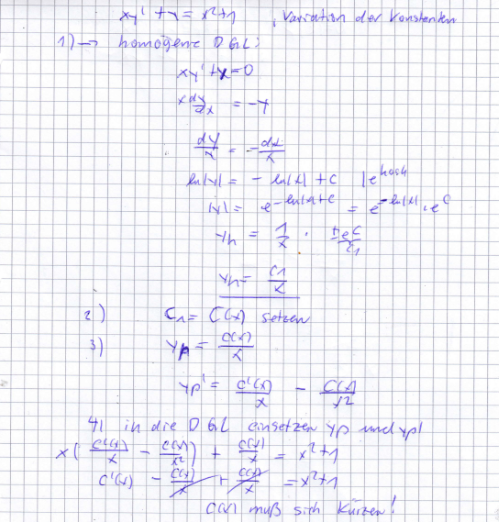 xy' + y = x²+1 , Variation der Konstanten
1) → homogene DGL:
xy' + y = 0
x dy/dx = -y
dy/y = - dx/x
ln|y| = - ln|x| + C | e hoch
|y| = e^(-ln|x|+C) = e^(-ln|x|) · e^C
yh = 1/x · ±e^C
C1
yh = C1/x
2) C1 = C(x) setzen
3) yp = C(x)/x
yp' = C'(x)/x - C(x)/x²
4) in die DGL einsetzen yp und yp'
x( C'(x)/x - C(x)/x² ) + C(x)/x = x²+1
C'(x) - C(x)/x + C(x)/x = x²+1
C(x) muß sich kürzen!